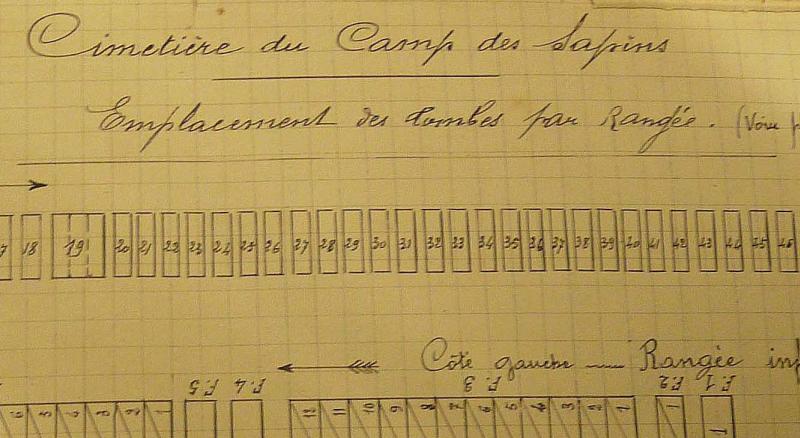 Cimetière du Camp des Sapins
Emplacement des tombes par Rangée. (Voir
18 19 20 21 22 23 24 25 26 27 28 29 30 31 32 33 34 35 36 37 38 39 40 41 42 43 44 45 46
Côté gauche — Rangée
F.5 F.4 F.3 F.2 F.1
12 11 10 9 8 7 6 5 4 3 2 1 1 1